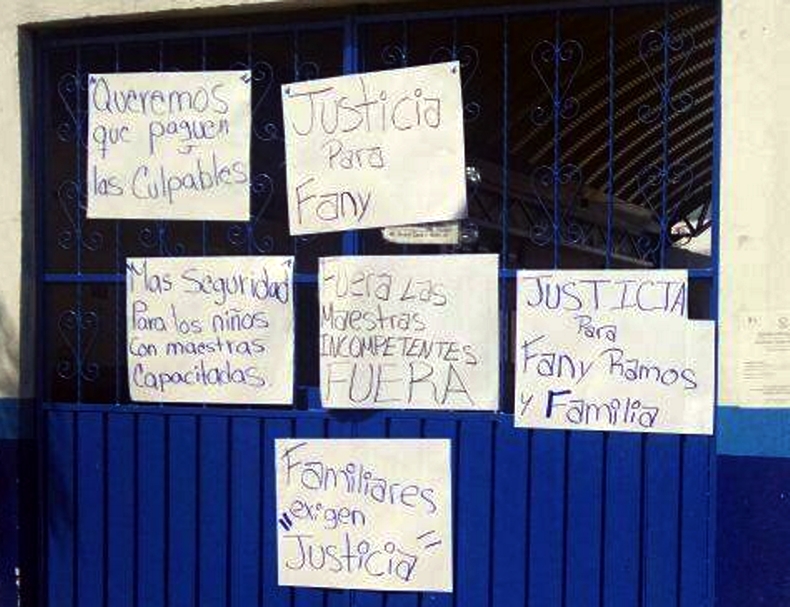 Queremos
que paguen
las Culpables
Justicia
Para
Fany
Mas Seguridad
Para los niños
Con maestras
Capacitadas.
Fuera Las
Maestras
INCOMPETENTES
FUERA
JUSTICIA
Para
Fany Ramos
y Familia
Familiares
"exigen
Justicia"